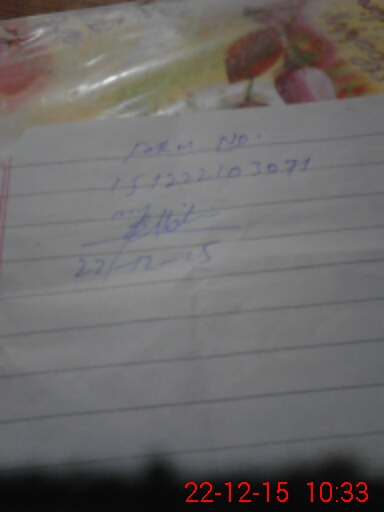 FORM NO.
151222103071
22-12-15
22-12-15 10:33